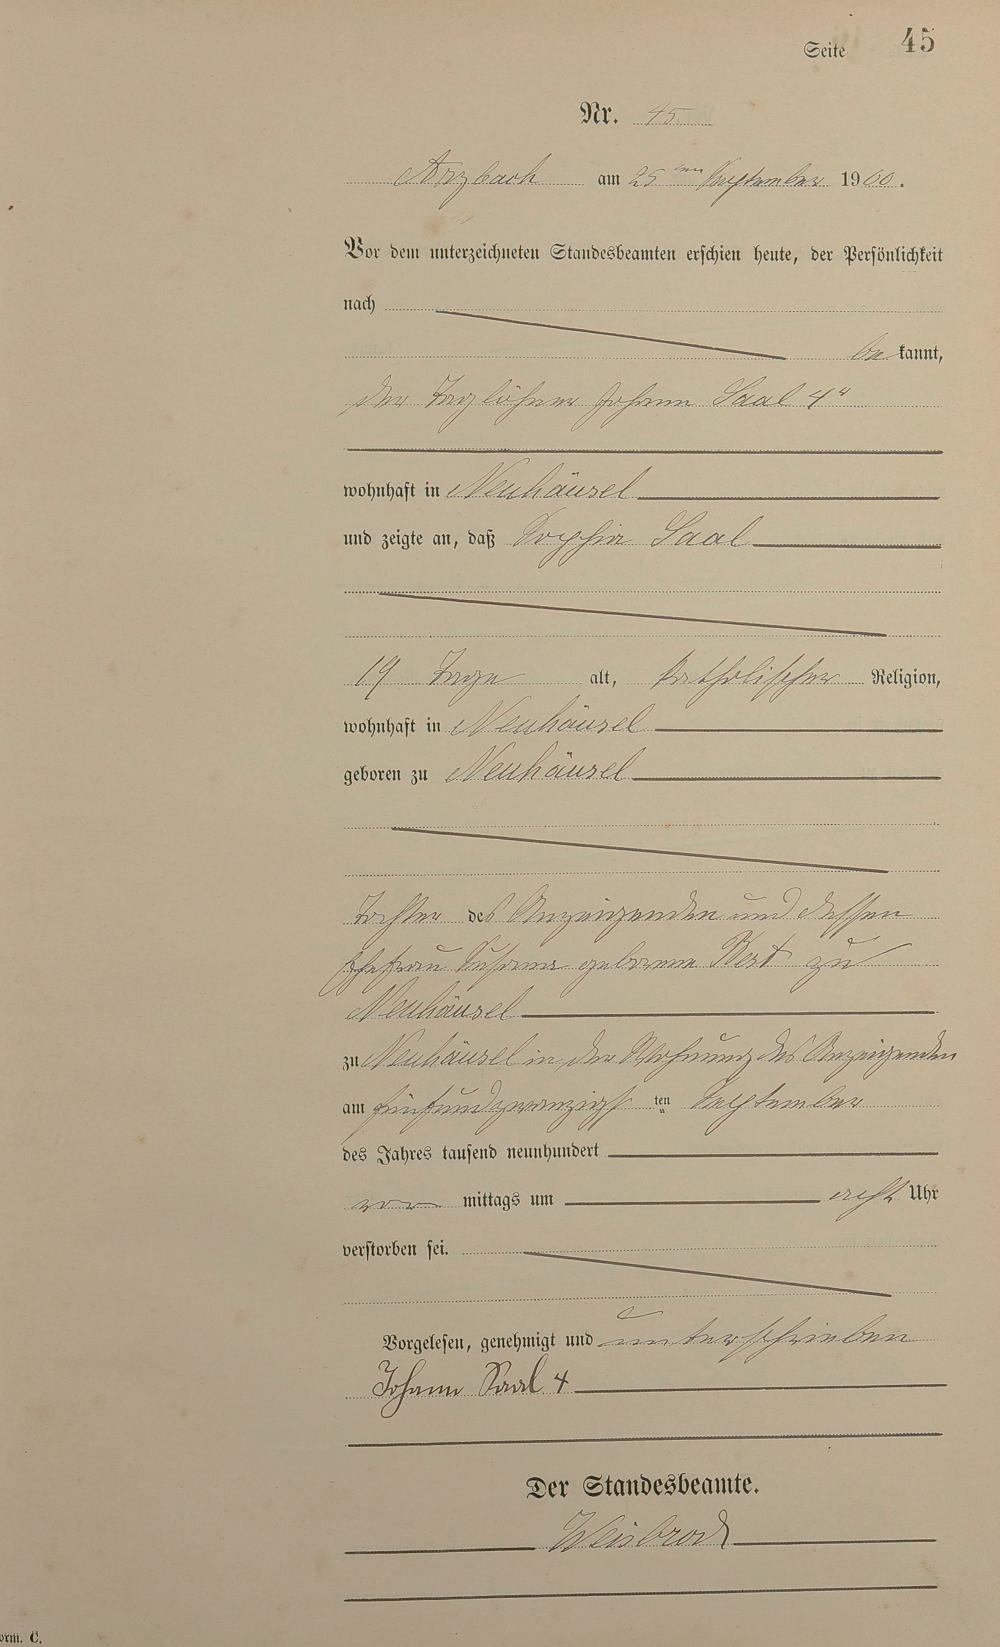 Seite 45
Nr. 45
Arzbach am 25ten September 1900.
Vor dem unterzeichneten Standesbeamten erschien heute, der Persönlichkeit
nach
be kannt,
der Taglöhner Johann Saal 4r
wohnhaft in Neuhäusel
und zeigte an, daß Sophia Saal
19 Tage alt, katholischer Religion,
wohnhaft in Neuhäusel
geboren zu Neuhäusel
Tochter des Anzeigenden und dessen
Ehefrau Susanna geborene zu
Neuhäusel
zu Neuhäusel in der Wohnung des Anzeigenden
am fünfundzwanzigsten September
des Jahres tausend neunhundert
vor mittags um acht Uhr
verstorben sei.
Vorgelesen, genehmigt und unterschrieben
Johann Saal 4
Der Standesbeamte.
Weisbrod
orm. C.